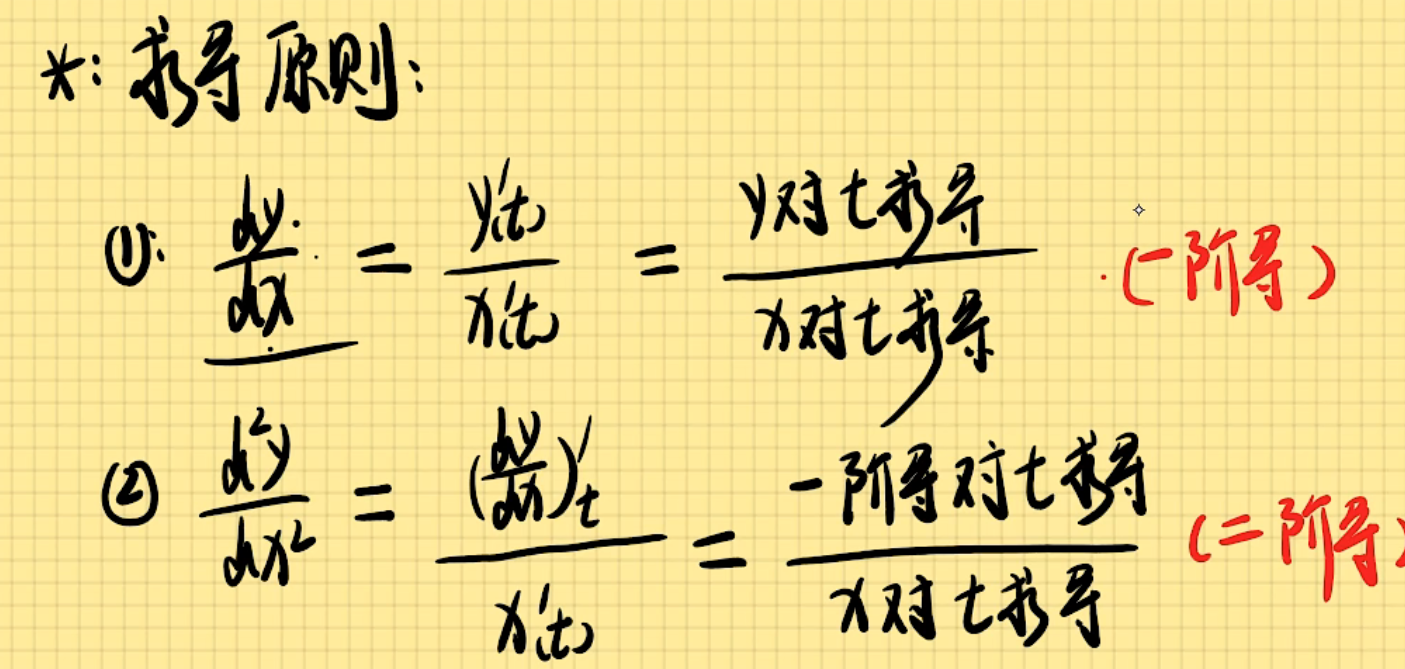 *: 求导原则:
①: dy/dx = y'(t)/x'(t) = y对t求导/x对t求导 (一阶导)
② d²y/dx² = (dy/dx)'t/x'(t) = 一阶导对t求导/x对t求导 (二阶导)